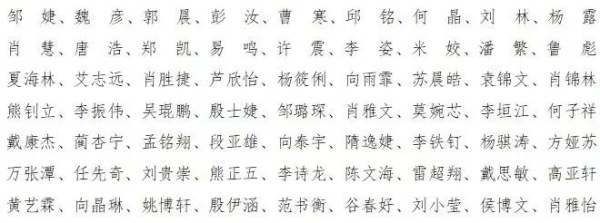 邹　婕、魏　彦、郭　晨、彭　汝、曹　寒、邱　铭、何　晶、刘　林、杨　露
肖　慧、唐　浩、郑　凯、易　鸣、许　震、李　姿、米　姣、潘　繁、鲁　彪
夏海林、艾志远、肖胜捷、芦欣怡、杨筱俐、向雨霏、苏晨皓、袁锦文、肖锦林
熊钊立、李振伟、吴琨鹏、殷士婕、邹璐琛、肖雅文、莫婉芯、李垣江、何子祥
戴康杰、蔺杏宁、孟铭翔、段亚雄、向泰宇、隋逸婕、李铁钉、杨骐涛、方娅苏
万张潭、任先奇、刘贵崇、熊正五、李诗龙、陈文海、雷超翔、戴思敏、高亚轩
黄艺霖、向晶琳、姚博轩、殷伊涵、范书衡、谷春好、刘小莹、侯博文、肖雅怡